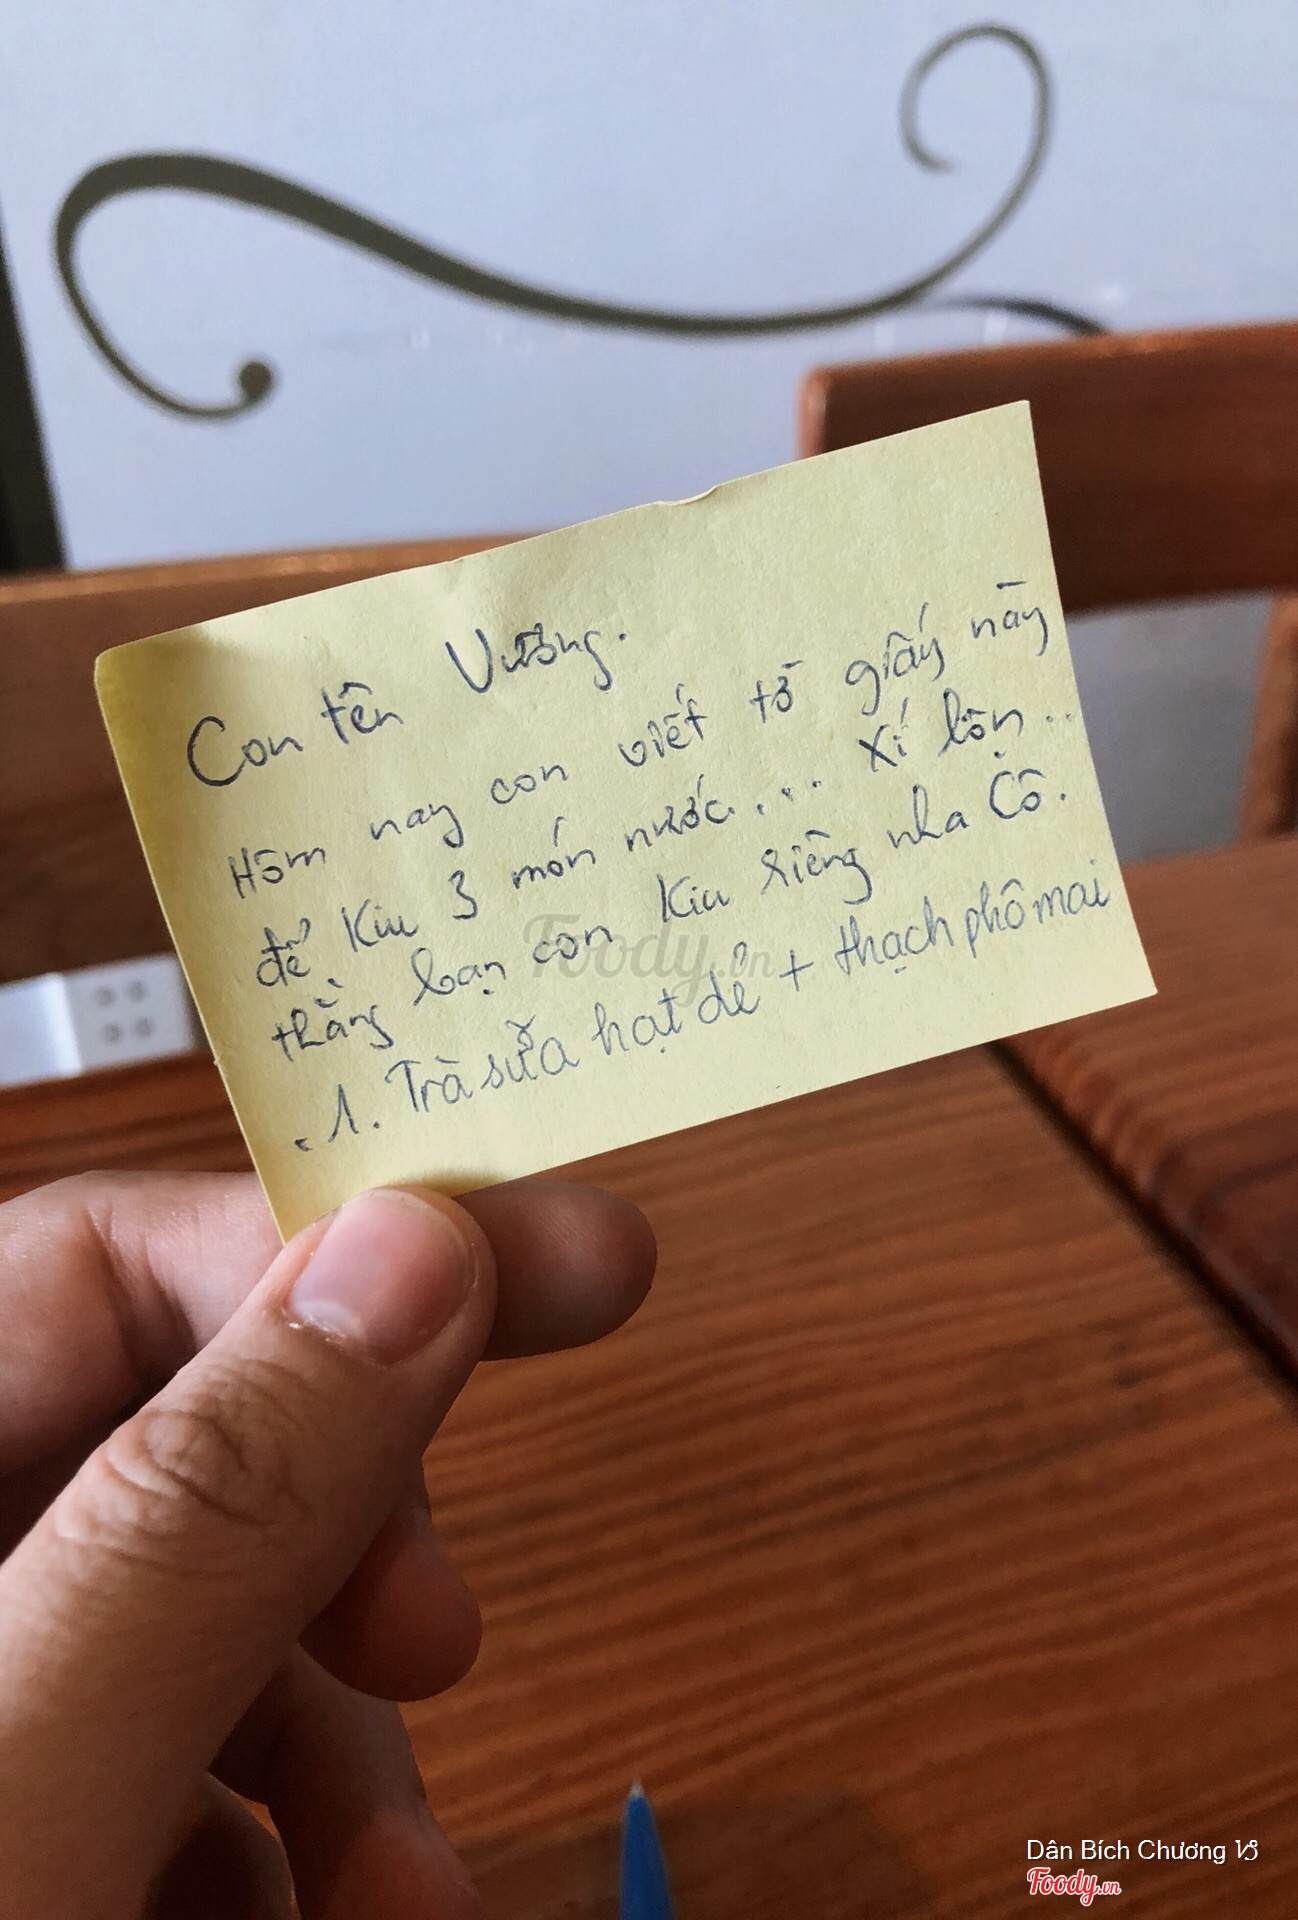 Con tên Vương.
Hôm nay con viết tờ giấy này
để Kiu 3 món nước.... Xí lộn..
thằng bạn con Kiu riêng nha Cô.
.1. Trà sữa hạt dẻ + thạch phô mai
Foody.vn
Dân Bích Chương
Foody.vn